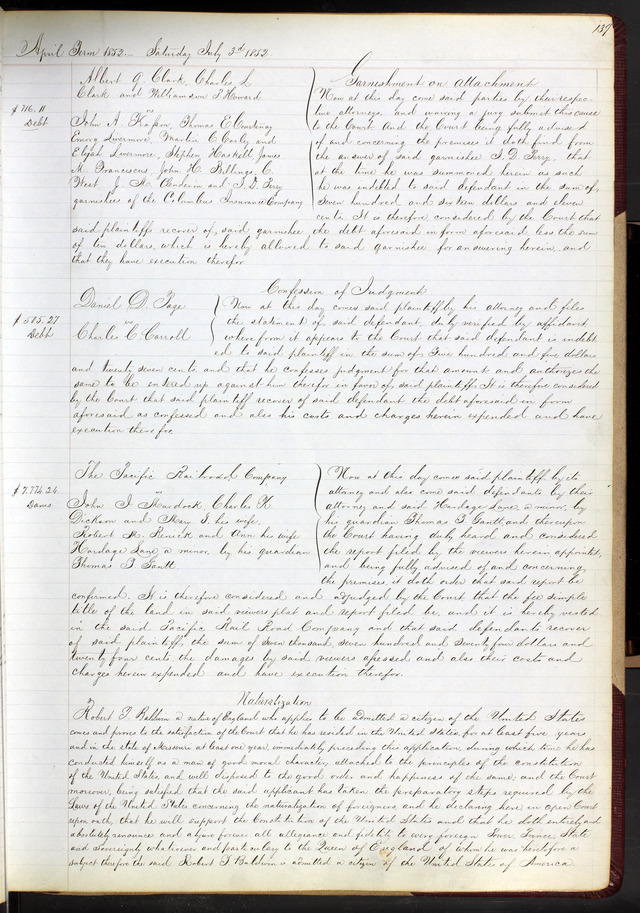 139
April Term 1852. Saturday July 3d 1852
Albert G. Clark, Charles L
Clark and Williamson S Howard
vs
$716.11
Debt
John A Kasson, Thomas E Courtenay
Emery Livermore, Martin C Corley and
Elijah Livermore, Stephen Haskell, James
M. Franciscus, John H. Billings C.
West J. N. and S. D. Terry
garnishees of the Columbus Insurance Company
Garnishment on Attachment
Now at this day come said parties by their respec-
tive attorneys, and waiving a jury submit this cause
to the Court. And the Court being fully advised
of and concerning the premises it doth find from
the answer of said garnishee S. D. Terry, that
at the time he was summoned herein as such
he was indebted to said defendant in the sum of,
Seven hundred and sixteen dollars and eleven
cents. It is therefore considered by the Court that
said plaintiffs recover of said garnishee the debt aforesaid in form aforesaid less the sum
of ten dollars, which is hereby allowed to said garnishee for answering herein and
that they have execution therefor
Confession of Judgment
Daniel D. Page
vs
$505.27
Debt
Charles C. Carroll
Now at this day comes said plaintiff by his attorney and files
the statement of said defendant, duly verified by affidavit
wherefrom it appears to the Court that said defendant is indebt
ed to said plaintiff in the sum of Five hundred and five dollars
and twenty seven cents, and that he confesses judgment for that amount and authorizes the
same to be entered up against him therefor in favor of said plaintiff. It is therefore considered
by the Court that said plaintiff recover of said defendant the debt aforesaid in form
aforesaid as confessed and also his costs and charges herein expended and have
execution therefor
The Pacific Railroad Company
vs
$7.774.24
Dams
John J. Murdock, Charles K.
Dickson and Mary S. his wife,
Robert M. Renick and Ann his wife
Hardage Lane a minor, by his guardian
Thomas T. Gantt
Now at this day comes said plaintiff by its
attorney and also come said defendants by their
attorney and said Hardage Lane, a minor, by
his guardian Thomas T. Gantt, and thereupon
the Court having duly heard and considered
the report filed by the viewers herein appointed,
and being fully advised of and concerning
the premises, it doth order that said report be
confirmed. It is therefore considered and adjudged by the Court that the fee simple
title of the land in said viewers plat and report filed be, and it is hereby vested
in the said Pacific Rail Road Company and that said defendants recover
of said plaintiff, the sum of Seven thousand, seven hundred and seventy four dollars and
twenty four cents, the damages by said viewers assessed and also their costs and
charges herein expended and have execution therefor.
Naturalization
Robert T. Baldwin a native of England who applies to be admitted a citizen of the United States
comes and proves to the satisfaction of the Court that he has resided in the United States, for at least five years
and in the state of Missouri at least one year, immediately preceding this application, during which time he has
conducted himself as a man of good moral character, attached to the principles of the constitution
of the United States, and well disposed to the good order and happiness of the same and the Court
moreover, being satisfied that the said applicant has taken the preparatory steps required by the
Laws of the United States concerning the naturalization of foreigners, and he declaring here in open Court
upon oath, that he will support the Constitution of the United States and that he doth entirely and
absolutely renounce and abjure forever all allegiance and fidelity to every foreign Power, Prince, State
and Sovereignty whatsoever and particularly to the Queen of England of whom he was heretofore a
subject therefore the said Robert T. Baldwin is admitted a citizen of the United States of America